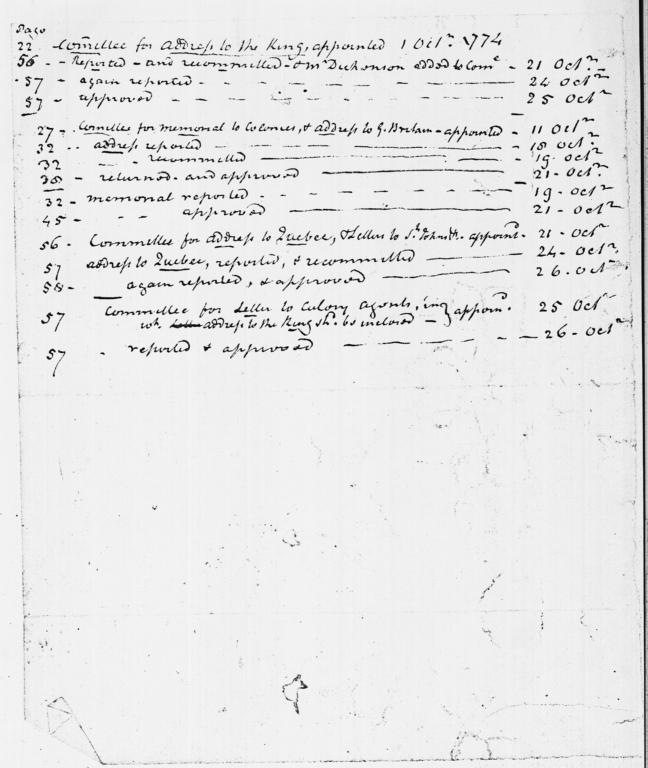 Page
22. Com̃ittee for address to the King, appointed 1 Octr. 1774
56 - - Reported - and recommitted - & Mr Dickenson added to Come - 21 Octr.
57 - again reported - - - - - - - 24 Octr
57 - approved - - - - - - - - 25 Octr
27 - Com̃ittee for memorial to Colonies, & address to G. Britain - appointed - 11 Octr
32 - - address reported - 18 Octr
32 - - recommitted - 19 Octr
38 - returned - and approved - 21 - Octr.
32 - memorial reported - - - - - - 19 - Octr
45 - - - approved - 21 - Octr
56 - Committee for address to Quebec, & Letters to St. Johns &c. - appoint. - 21 - Octr
57 address to Quebec, reported, & recommitted - 24 - Octr
58 - again reported, & approved - 26 - Octr
57 Committee for Letter to Colony agents, in appoind. 25 Octr
wh. Letter address to the King sh. be inclosed -
57 - reported & approved - - - - 26 - Octr